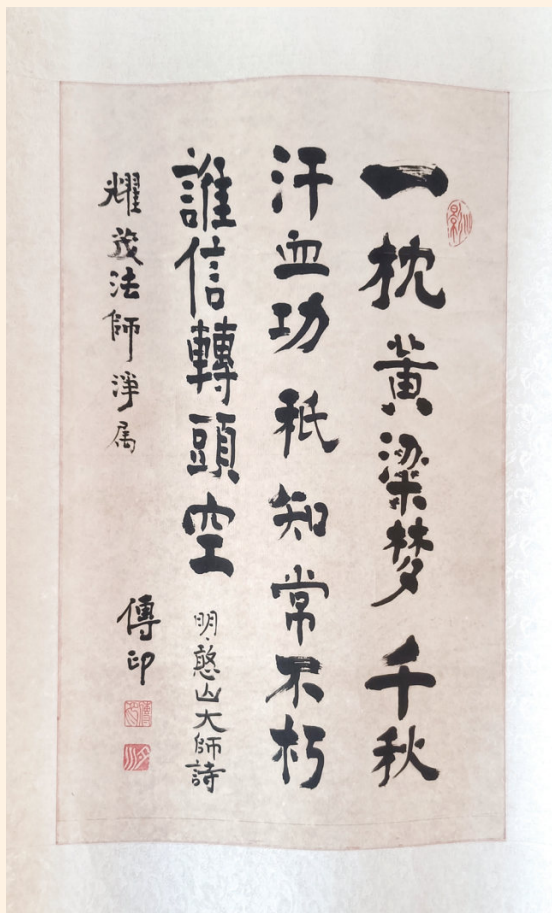 一枕黄粱梦千秋
汗血功祇知常不朽
誰信轉頭空
明憨山大師詩
耀茂法師淨属
傳印